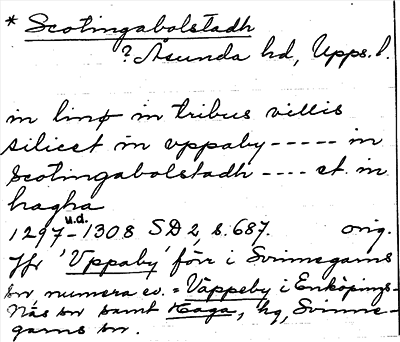 * Scotingabolstadh
? Åsunda hd, Upps. l.
in linø in tribus villis
silicet in vppaby ----- in
Scotingabolstadh ---- et in
hagha
u.d.
1297-1308 SD 2, s. 687. orig.
Jfr 'Vppaby' förr i Svinnegarns
sn numera ev. = Väppeby i Enköpings-
Näs sn samt Haga, hg, Svinne-
garns sn.